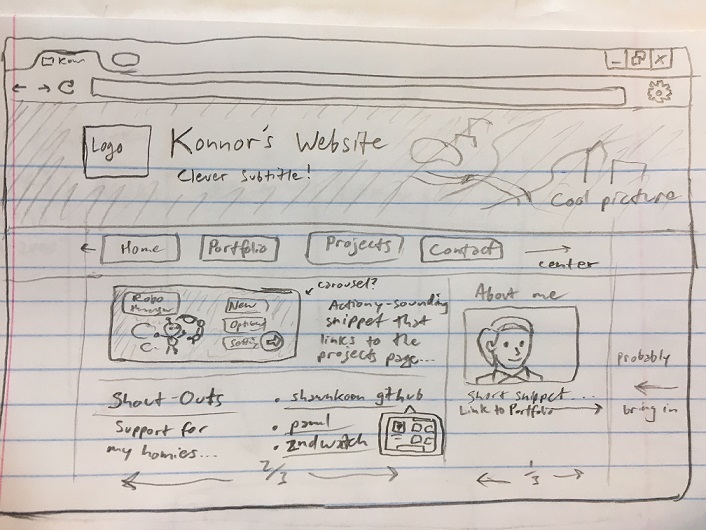 Kon
Logo
Konnor's Website
Clever Subtitle!
Cool picture
Home
Portfolio
Projects
Contact
center
carousel?
Robo
New
Options
Actiony-sounding
snippet that
links to the
projects page...
About me
Short snippet...
Link to Portfolio
probably
bring in
Shout-Outs
Support for
my homies...
• shawnkoon github
• 2ndwatch
2/3
1/3